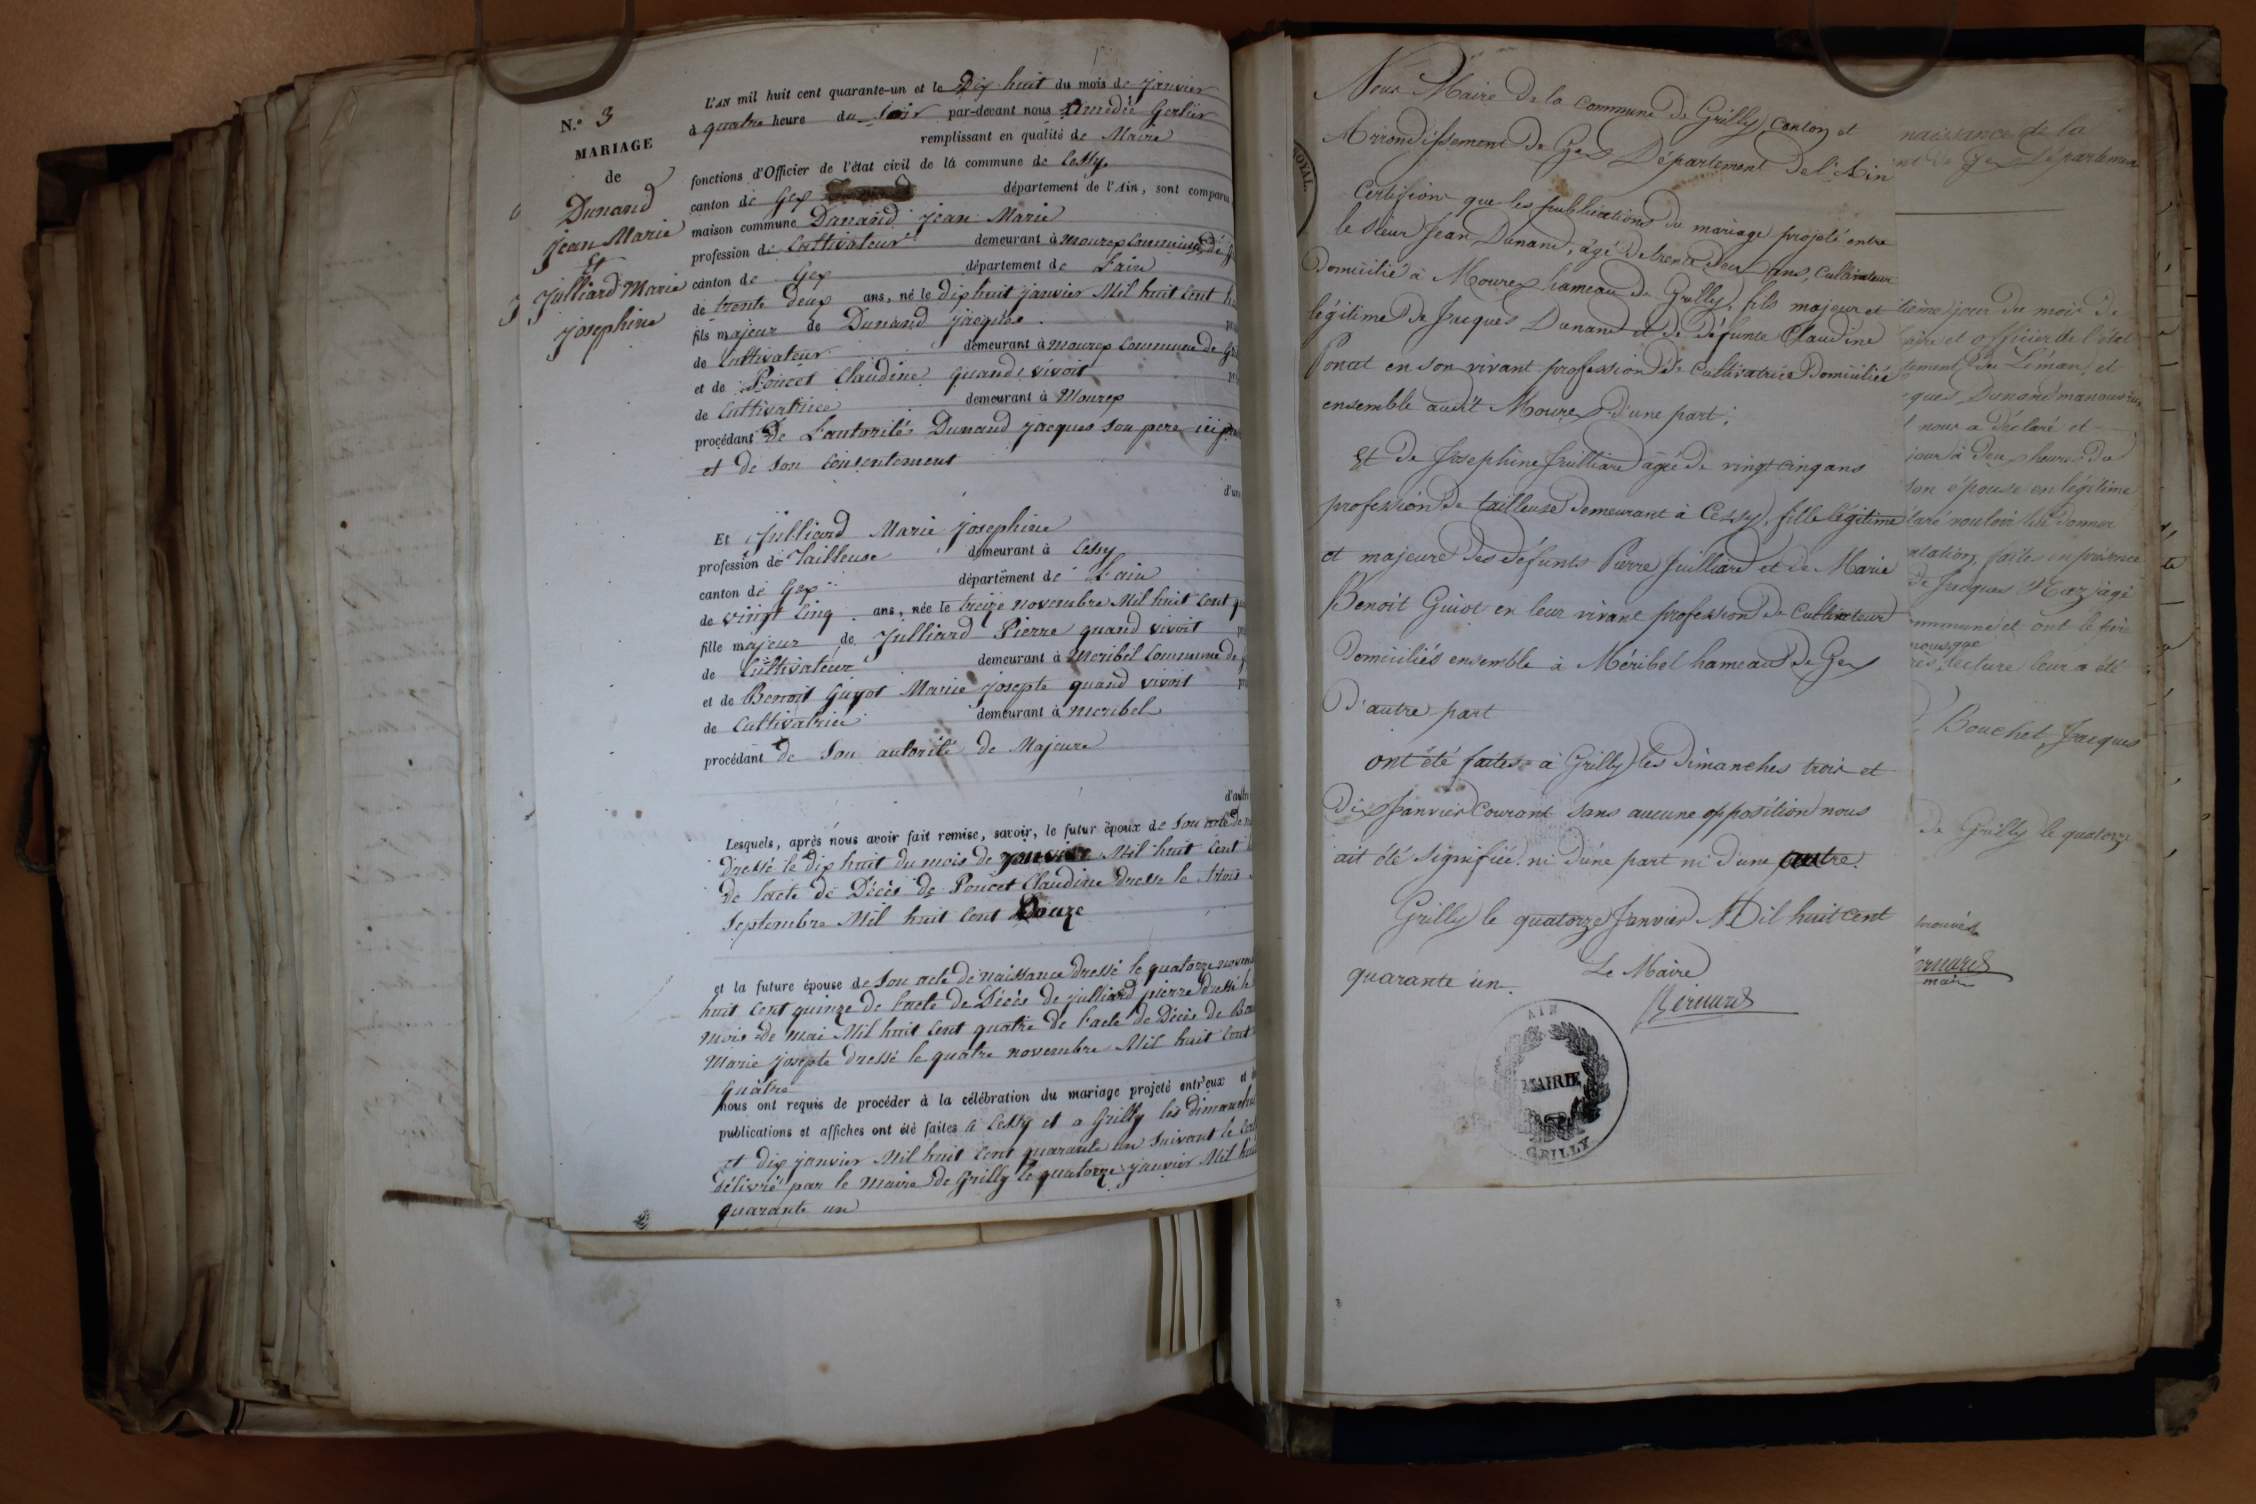 N.º 3
MARIAGE
de
Dunand
Jean Marie
Et
Julliard Marie
josephine
L'AN mil huit cent quarante-un et le Dix huit du mois de janvier
à quatre heure du soir par-devant nous Amedée Gerlier
remplissant en qualité de Maire
fonctions d'Officier de l'état civil de la commune de Cessy
canton de Gex département de l'Ain, sont comparu
maison commune Dunand jean Marie
profession de Cultivateur demeurant à Mourex Commune de
canton de Gex département de L'ain
de trente deux ans, né le dix huit janvier Mil huit Cent
fils majeur de Dunand jacques
de Cultivateur demeurant à Mourex Commune de
et de Poncet Claudine quand vivoit
de Cultivatrice demeurant à Mourex
procédant de L'autorité Dunand jacques son pere ici
et de son consentement
d'une
Et Julliard Marie josephine
profession de Tailleuse demeurant à Cessy
canton de Gex département de L'ain
de vingt Cinq ans, née le treize novembre Mil huit Cent
fille majeur de Julliard Pierre quand vivoit
de Cultivateur demeurant à Meribel Commune de
et de Benoit Guyot Marie josepte quand vivoit
de Cultivatrice demeurant à Meribel
procédant de Son autorité de Majeure
d'autre
Lesquels, après nous avoir fait remise, savoir, le futur époux de Son acte de
Dressé le dix huit du mois de janvier Mil huit Cent
de l'acte de Décès de Poncet Claudine Dresse le trois
Septembre Mil huit Cent Douze
et la future épouse de Son acte de naissance dressé le quatorze novem
huit Cent quinze de l'acte de Décès de julliard pierre dressé le
mois de mai Mil huit Cent quatre de l'acte de Décès de
Marie josepte dressé le quatre novembre Mil huit Cent
quatre
nous ont requis de procéder à la célébration du mariage projeté entr'eux et
publications et affiches ont été faites à Cessy et a Grilly les dimanches
et dix janvier Mil huit Cent quarante un suivant le
délivré par le Maire de Grilly le quatorze janvier Mil huit
quarante un
Nous Maire de la commune de Grilly, canton et
Arrondissement de Gex Département de l'Ain
Certifions que les publications du mariage projeté entre
le Sieur Jean Dunand, âgé de trente deux ans, Cultivateur
Domicilié à Mourex hameau de Grilly, fils majeur et
légitime de Jacques Dunand et de défunte Claudine
Poncet en son vivant profession de Cultivatrice Domiciliée
ensemble audit Mourex d'une part;
Et de Josephine Juilliard agée de vingt cinq ans
profession de tailleuse demeurant à Cessy, fille légitime
et majeure des défunts Pierre Juilliard et de Marie
Benoit Guiot en leur vivant profession de Cultivateur
Domiciliés ensemble à Méribel hameau de Gex
D'autre part
ont été faites à Grilly les Dimanches trois et
Dix Janvier Courant sans aucune opposition nous
ait été signifiée ni d'une part ni d'une autre.
Grilly le quatorze Janvier Mil huit cent
quarante un.
Le Maire
AIN
MAIRIE
GRILLY
naissance de la
de Gex Département
jour du mois de
et officier de l'état
du Léman, et
Dunand
nous a déclaré et
jour à deux heures du
son épouse en légitime
vouloir lui donner
faites en présence
de Jacques
et ont
lecture leur a été
Bouchet Jacques
de Grilly le quatorze